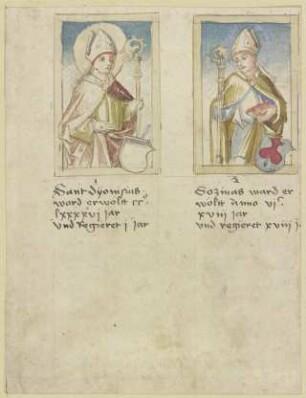 Sant dyonisius
ward erwölt cc
lxxxvi jar
und Regieret i jar
Sozimas ward er
wölt Anno vi
xviii jar
und regieret xviii j